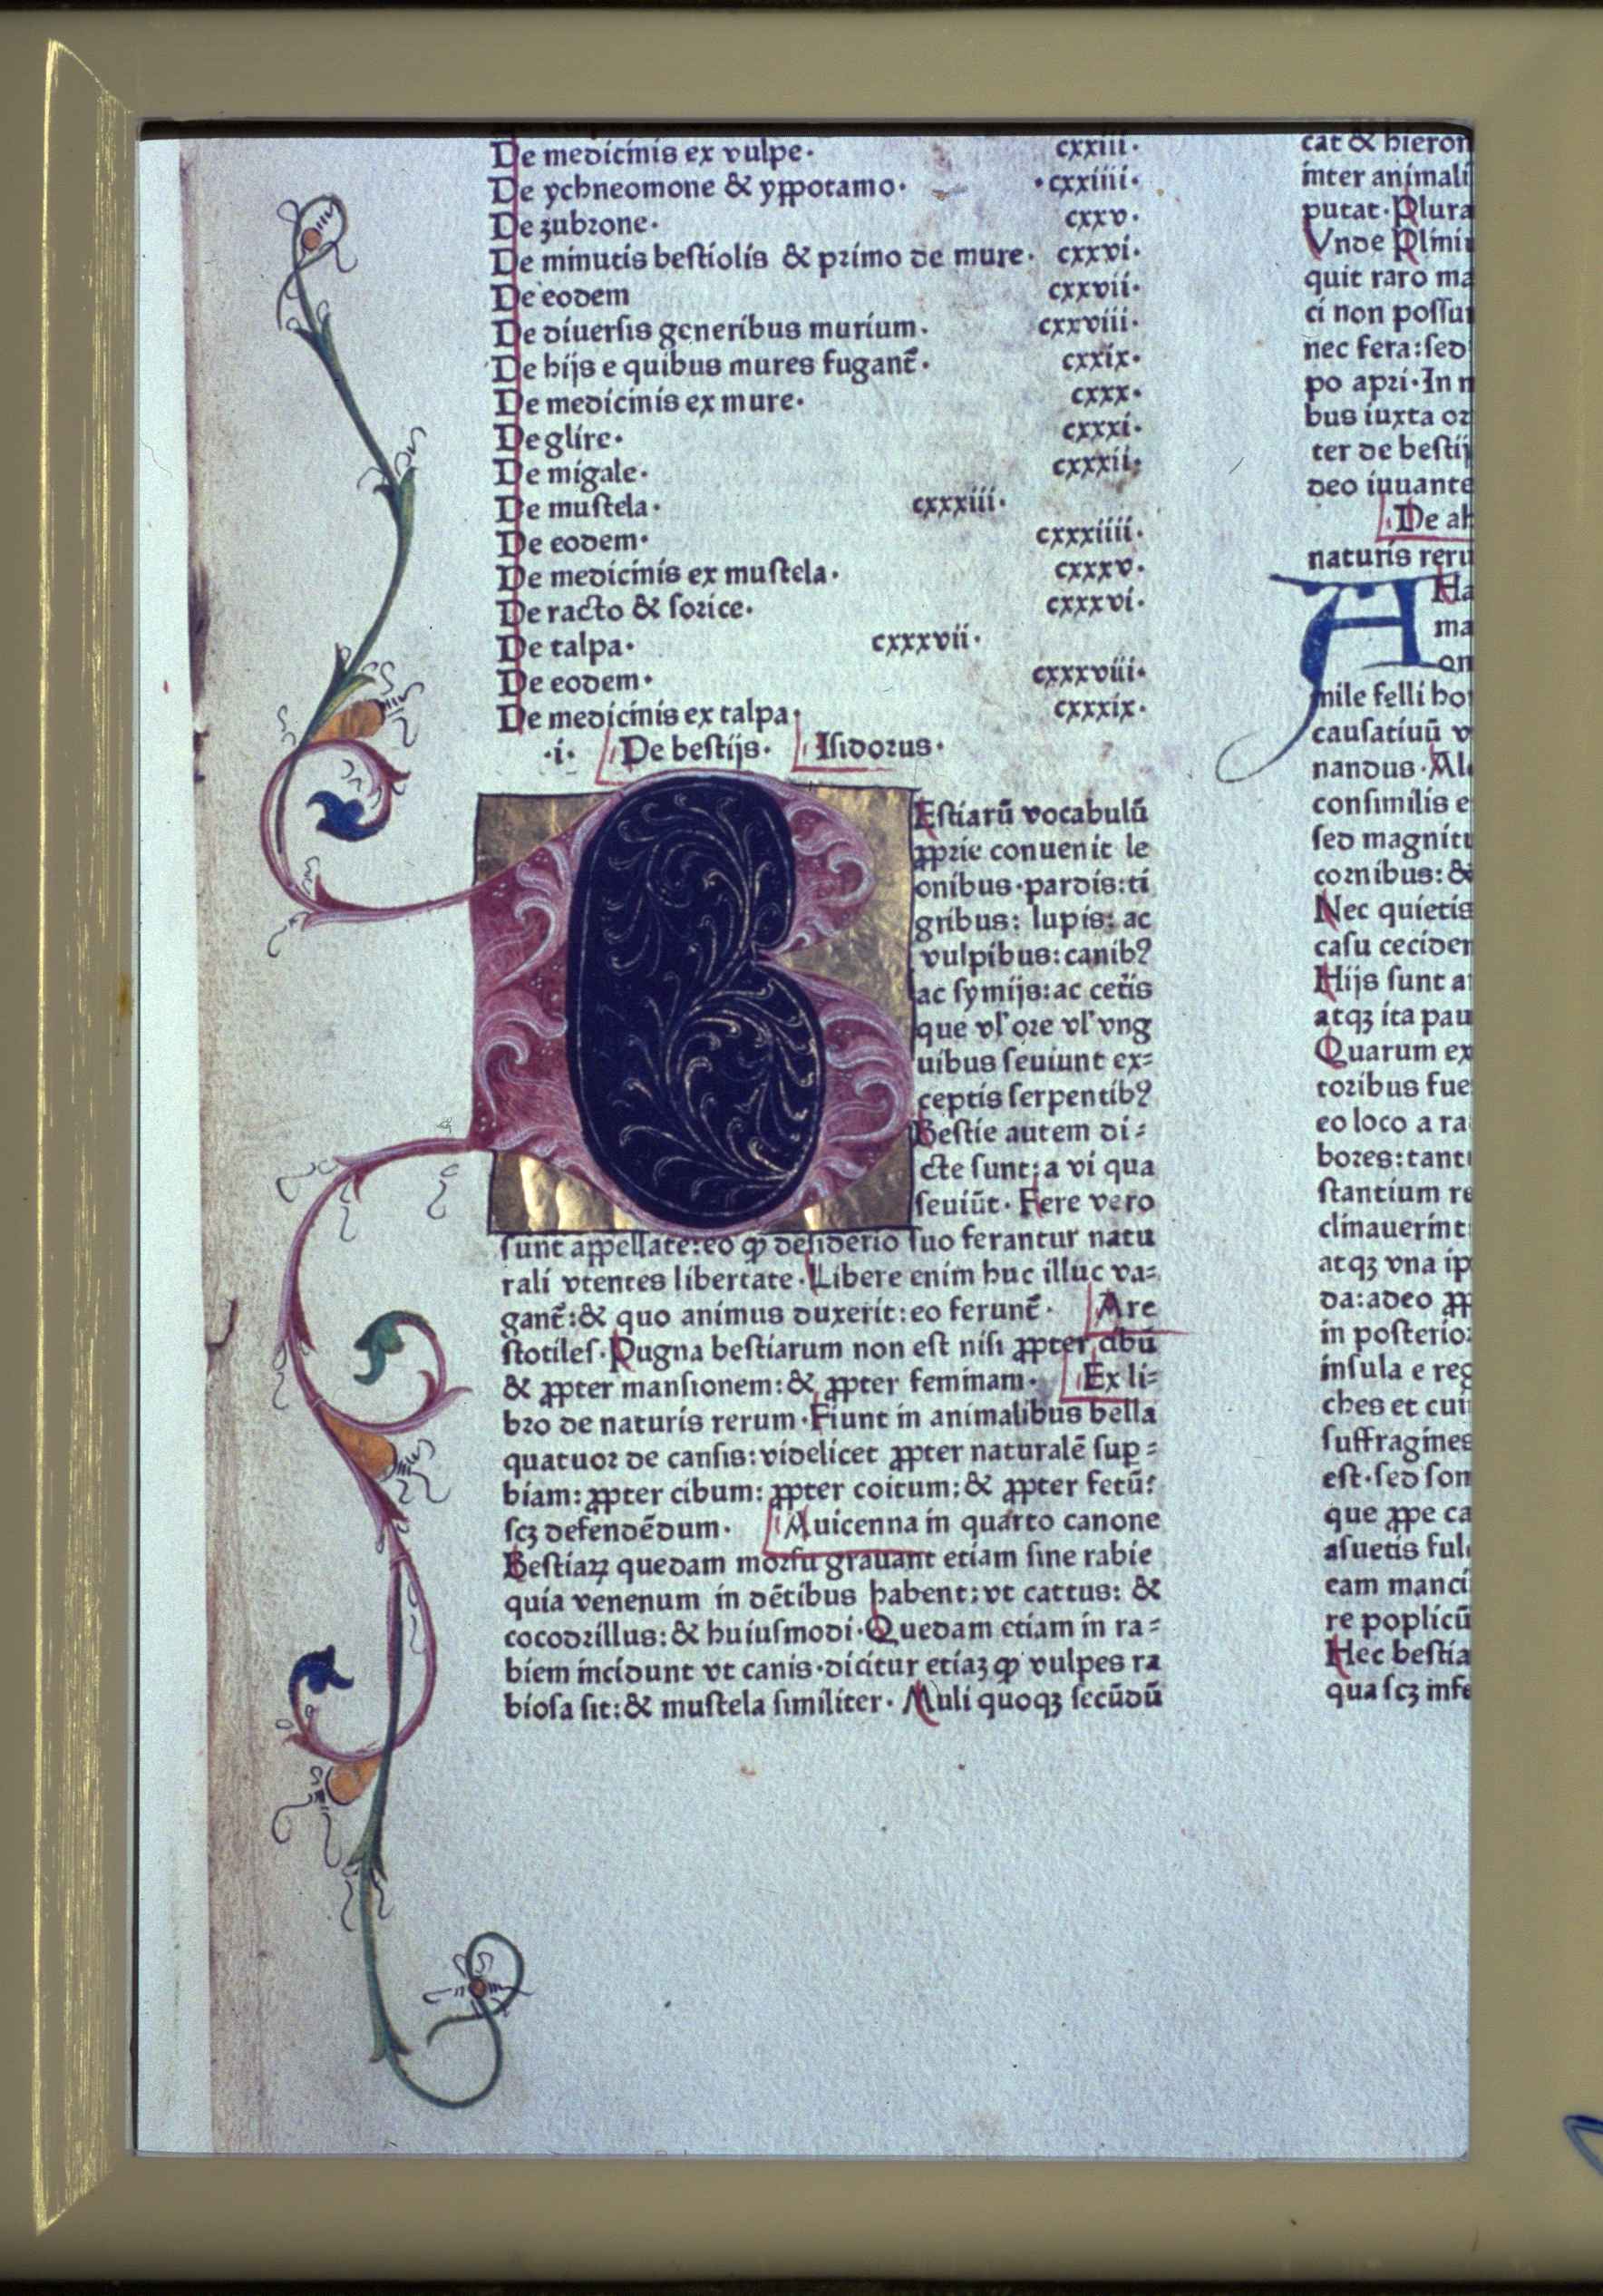 De medicinis ex vulpe· cxxiii·
De ychneomone & yppotamo· ·cxxiiii·
De zubrone· cxxv·
De minutis bestiolis & primo de mure· cxxvi·
De eodem cxxvii·
De diuersis generibus murium· cxxviii·
De hijs e quibus mures fugant̄· cxxix·
De medicinis ex mure· cxxx·
De glire· cxxxi·
De migale· cxxxii·
De mustela· cxxxiii·
De eodem· cxxxiiii·
De medicinis ex mustela· cxxxv·
De racto & sorice· cxxxvi·
De talpa· cxxxvii·
De eodem· cxxxviii·
De medicinis ex talpa· cxxxix·
·i· De bestijs· Isidorus·
BEstiarū vocabulū
ꝓprie conuenit le
onibus·pardis:ti
gribus: lupis: ac
vulpibus:canibꝰ
ac symijs:ac cetis
que vl' ore vl' vng
uibus seuiunt ex=
ceptis serpentibꝰ
Bestie autem di=
cte sunt:a vi qua
seuiūt· Fere vero
sunt appellate:eo ꝙ desiderio suo ferantur natu
rali vtentes libertate·Libere enim huc illuc va=
gant̄:& quo animus duxerit:eo ferunt̄· Are
stotiles·Pugna bestiarum non est nisi ꝓpter cibū
& ꝓpter mansionem:& ꝓpter feminam· Ex li=
bro de naturis rerum·Fiunt in animalibus bella
quatuor de cansis:videlicet ꝓpter naturalē suꝑ=
biam:ꝓpter cibum: ꝓpter coitum:& ꝓpter fetū:
scꝫ defendēdum· Auicenna in quarto canone
Bestiaꝝ quedam morsu grauant etiam sine rabie
quia venenum in dētibus habent:vt cattus: &
cocodrillus:& huiusmodi·Quedam etiam in ra=
biem incidunt vt canis·dicitur etiaꝫ ꝙ vulpes ra
biosa sit:& mustela similiter· Muli quoqꝫ secūdū
cat & hieron
inter animali
putat·Plura
Vnde Plini
quit raro ma
ci non possu
nec fera:sed
po apri·In n
bus iuxta or
ter de bestij
deo iuuante
De ah
naturis reru
AHa
ma
on
mile felli ho
causatiuū v
nandus·Al
consimilis e
sed magnitu
cornibus:&
Nec quietis
casu cecider
Hijs sunt a
atqꝫ ita pau
Quarum ex
toribus fue
eo loco a ra
bores:tant
stantium re
clinauerint
atqꝫ vna ip
da:adeo ꝓp
in posterio
insula e reg
ches et cui
suffragines
est·sed som
que ꝓpe ca
asuetis ful
eam manci
re poplicū
Hec bestia
qua scꝫ infe